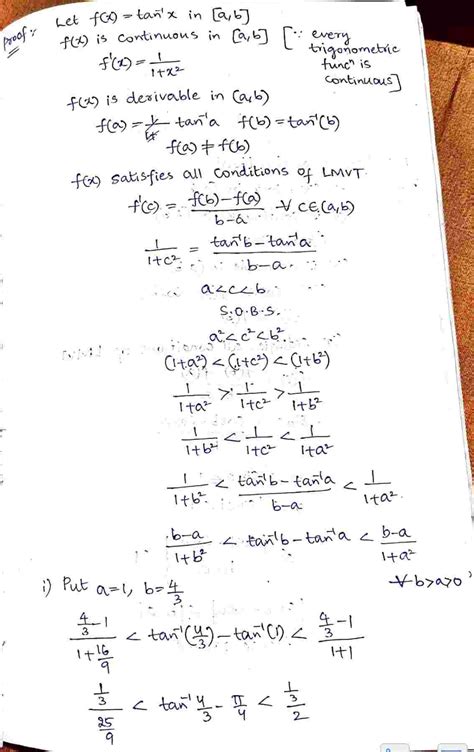 Proof :- Let f(x) = tan⁻¹x in [a,b]
f(x) is continuous in [a,b] [∵ every trigonometric funcⁿ is continuous]
f'(x) = 1/(1+x²)
f(x) is derivable in (a,b)
f(a) = tan⁻¹a f(b) = tan⁻¹(b)
f(a) ≠ f(b)
f(x) satisfies all conditions of LMVT
f'(c) = (f(b)-f(a))/(b-a) ∀ c∈(a,b)
1/(1+c²) = (tan⁻¹b - tan⁻¹a)/(b-a)
a<c<b
S.O.B.S.
a²<c²<b²
(1+a²) < (1+c²) < (1+b²)
1/(1+a²) > 1/(1+c²) > 1/(1+b²)
1/(1+b²) < 1/(1+c²) < 1/(1+a²)
1/(1+b²) < (tan⁻¹b - tan⁻¹a)/(b-a) < 1/(1+a²)
(b-a)/(1+b²) < tan⁻¹b - tan⁻¹a < (b-a)/(1+a²)
∀ b>a>0
i) Put a=1, b=4/3
(4/3 - 1)/(1+16/9) < tan⁻¹(4/3) - tan⁻¹(1) < (4/3 - 1)/(1+1)
(1/3)/(25/9) < tan⁻¹ 4/3 - π/4 < (1/3)/2